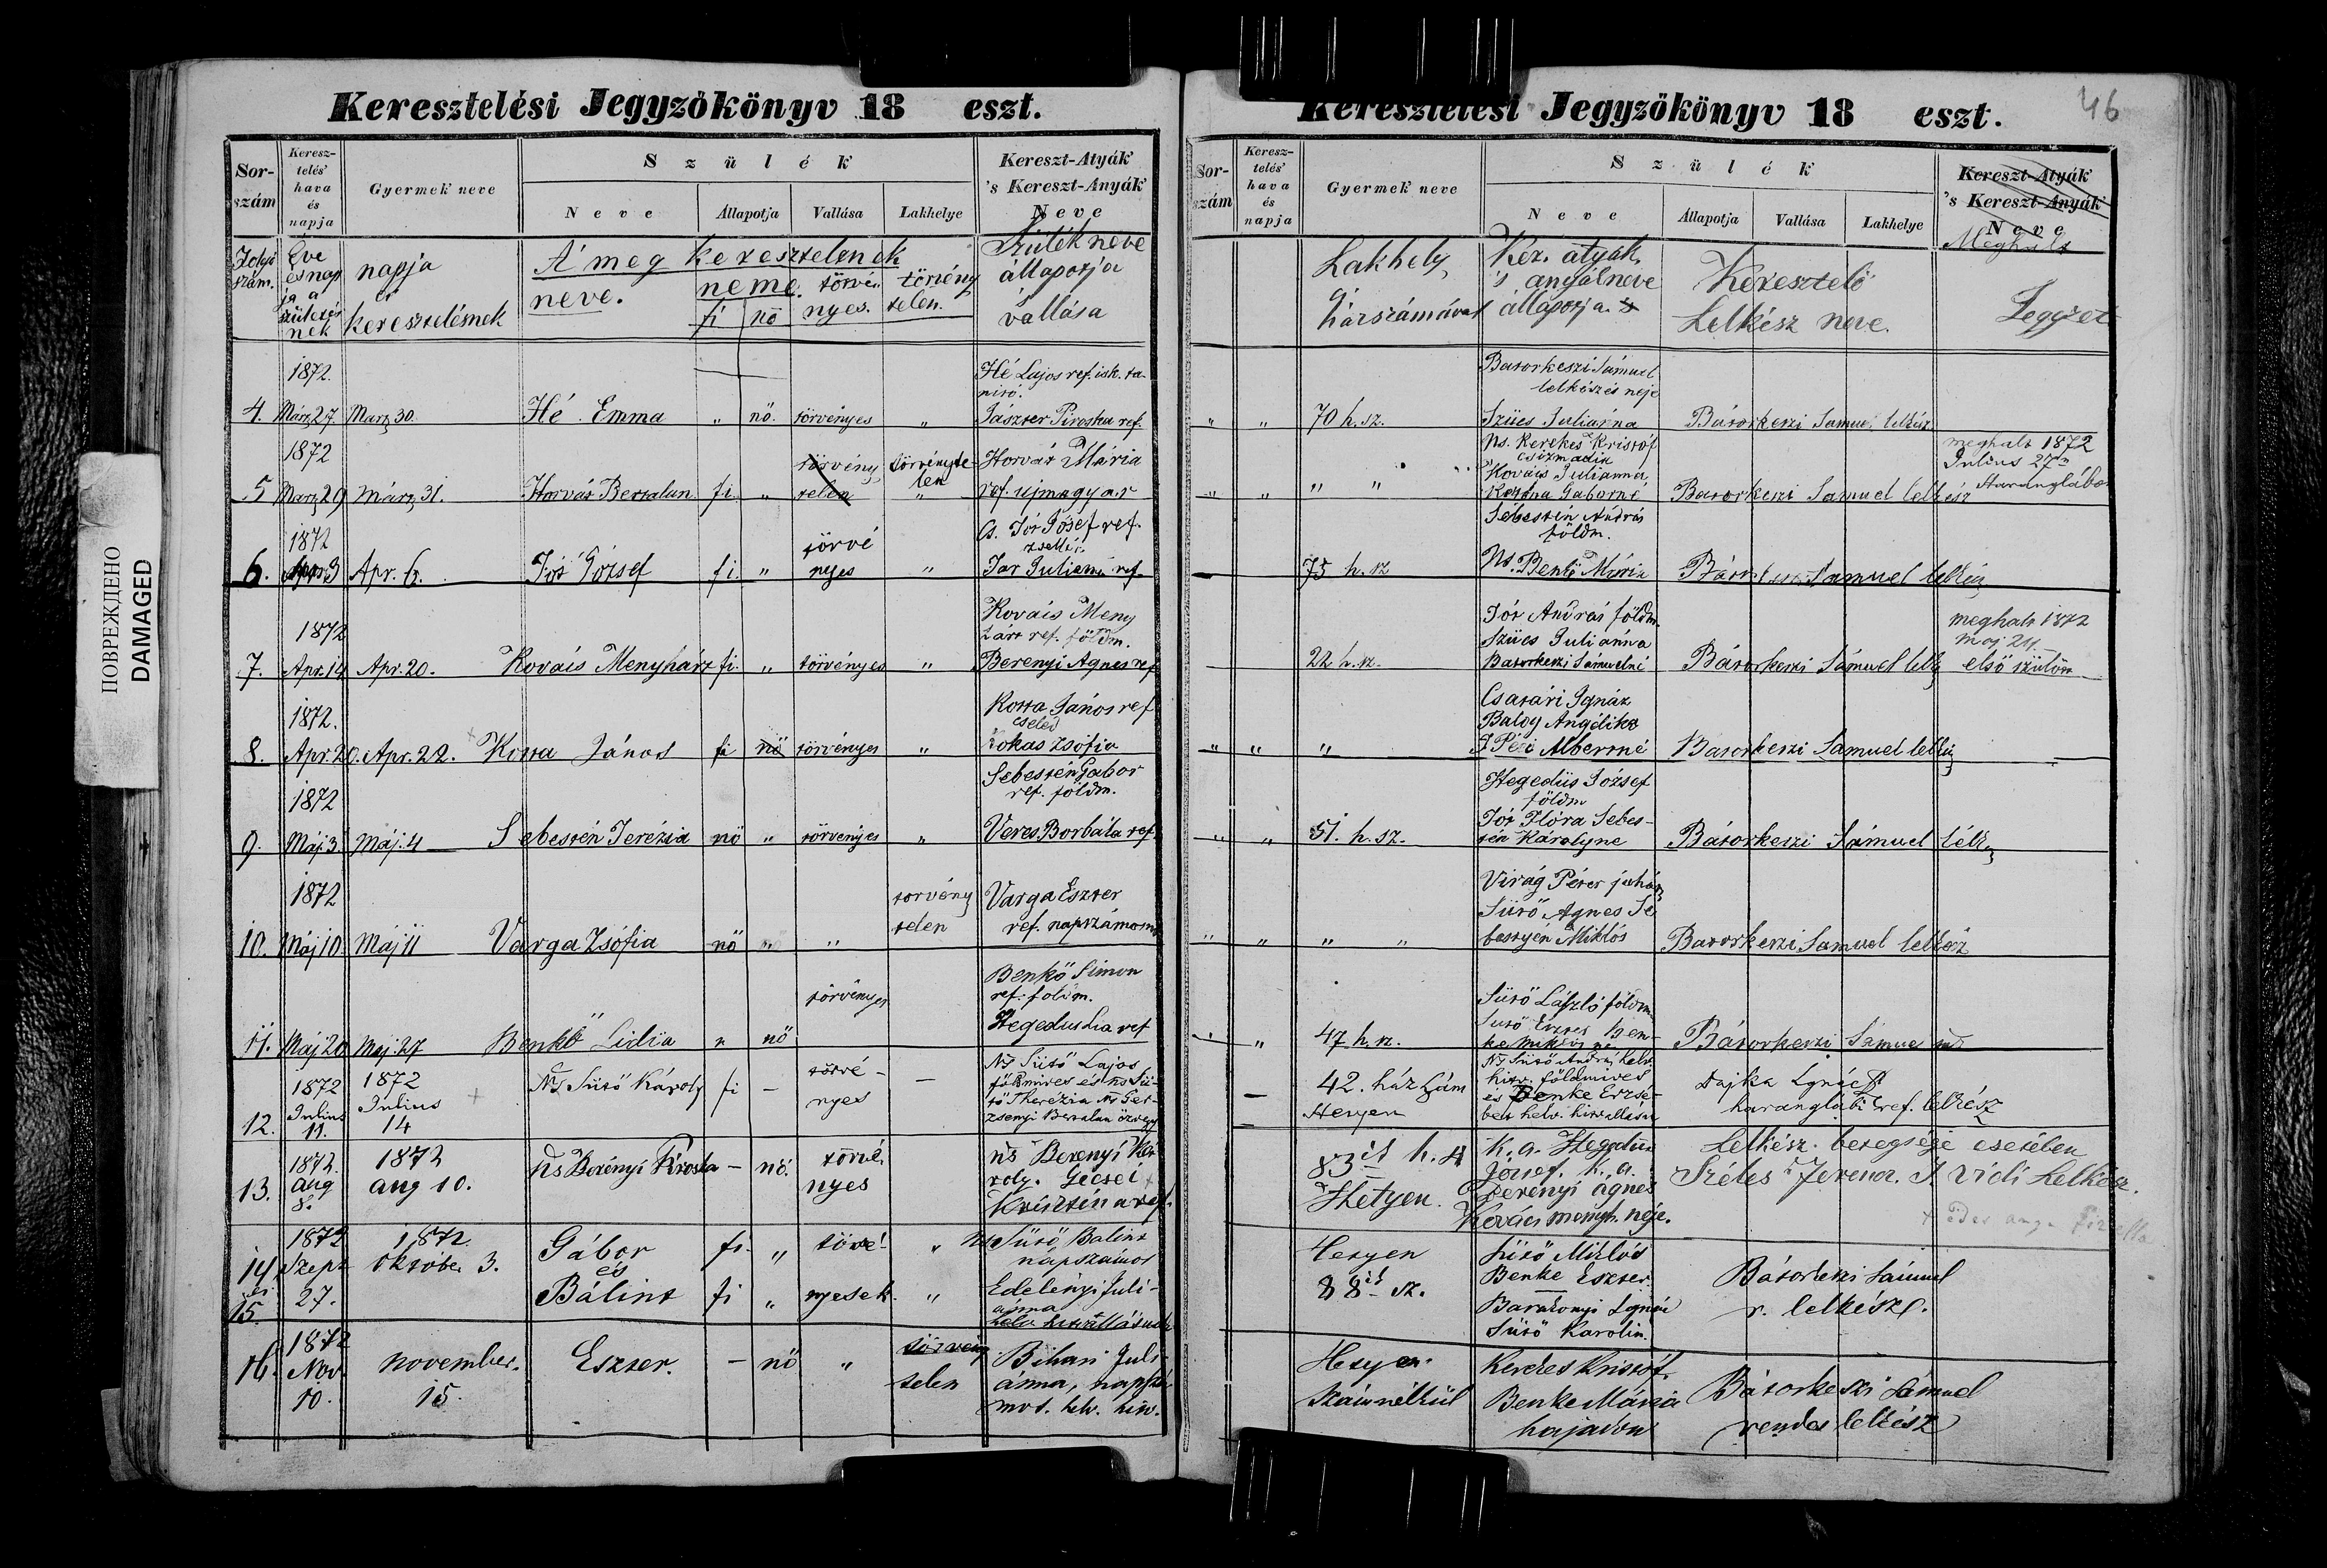 Keresztelési Jegyzőkönyv 18 eszt.
Sor-
szám
Keresz-
telés'
hava
és
napja
Gyermek neve
Szülék
Neve
Állapotja
Vallása
Lakhelye
Kereszt-Atyák
's Kereszt-Anyák
Neve
Folyó
szám.
Éve
és nap
ja a
születés
nek
napja
a
keresztelésnek
A' meg keresztelenek
neve.
neme.
fi
nö
törvé
nyes.
törvény
telen.
Szülék neve
állapotja
vallása
1872.
4. Márz 27. Marz 30. Hé Emma " nö. törvényes "
Hé Lajos ref. isk. ta-
nitó.
Jászter Piroska ref.
1872
5 Marz 29 márz 31. Horvát Bertalan fi. "
törvény
telen
törvényte-
len
"
Horvát Mária
ref. ujmagyar
1872
6. Apr. 3 Apr. 6. Tót József fi. "
törvé
nyes
"
Cs. Tót Jósef ref.
zsellér
Tar Julianna ref.
1872
7. Apr. 14 Apr. 20. Kováts Menyhárt fi. " törvényes "
Kováts Meny
hárt ref. földm.
Berenyi Agnes ref
1872.
8. Apr. 20. Apr. 22. Kotra János fi nö törvényes "
Kotra János ref
cseléd
Lokas Zsófia
1872
9. Máj. 3. Máj. 4 Sebestén Terézia nö " törvényes "
Sebestén Gabor
ref. földm.
Veres Borbála ref
1872
10. Máj 10. Máj 11 Varga Zsófia nö " "
törvény
telen
Varga Eszter
ref. napszámos
11. Maj 20 Maj. 27 Benkő Lidia " nö
törvényes
Benkő Simon
ref. földm.
Hegedus Lia ref
12.
1872
Julius
11.
1872
Julius
14
Ns Sütő Károly fi —
törvé-
nyes
—
Ns Sütő Lajos
földmives és ns Sü-
tő Therézia Ns Ger-
zsenyi Bertalan özvegy
13.
1872.
aug
8.
1872
aug 10.
ns Berényi Piroska — nö.
törvé
nyes
ns Berenyi Ká
roly. Gecsei
Krisztina ref.
14
és
15.
1872
Szept
27.
1872.
október 3.
Gábor
és
Bálint
fi. "
fi "
törvé-
nyesek.
"
"
ns Sütő Balint
napszámos
Edelényi Juli-
ánna
helv. hitvallásuak
16.
1872
Nov.
10.
november.
15.
Eszter. — nö "
törvény
telen
Bihari Juli
ánna, napszá
mos. helv. hitv.
Keresztelési Jegyzőkönyv 18 eszt.
46
Sor-
szám
Keresz-
telés'
hava
és
napja
Gyermek neve
Szülék
Neve
Állapotja
Vallása
Lakhelye
Kereszt-Atyák
's Kereszt-Anyák
Neve
Lakhely
házszámával
Ker. atyák,
's anyák neve
állapotja.
Keresztelő
Lelkész neve.
Meghalt
Jegyzet
" " 70 h. sz.
Batorkeszi Sámuel
lelkész és neje
Szücs Juliánna
Bátorkeszi Samuel lelkész
" " " "
Ns. Kerekes Kristóf
csizmadia
Kovács Julianna
Katona Gaborné
Batorkeszi Samuel lelkész
meghalt 1872
Julius 27n
Harangláb
75 h. sz
Sebestén András
földm.
Ns. Benkő Mária
Bátorkeszi Samuel lelkész
22 h. sz.
Tót András földm.
Szücs Julianna
Batorkeszi Sámuelné
Bátorkeszi Sámuel lelk
meghalt 1872
maj 24.
első szülött
" " "
Csatári Ignáz
Balog Angélika
Albertné
Batorkeszi Samuel lelkész
" " 51. h. sz.
Hegedüs József
földm
Tót Flóra Sebes-
tén Károlyne
Bátorkeszi Sámuel lelk
" " " "
Virág Péter juhász
Sütő Agnes Se
bestyén Miklós
Batorkeszi Samuel lelkész
" " 47 h. sz.
Sütő László földm
Sütő Eszter Ben-
ke Miklósné
Bátorkeszi Samuel
—
42. ház szám
Hetyen
Ns Sütő András helv.
hitv. földmives
és Benke Erzsé-
bet helv. hitvallásu
Tajka Ignácz
harangláb ref. lelkész
83ik h. sz
Hetyen.
K. a. Hegedüs
József. K. a.
Berényi ágnes
Kovács menyh. neje.
Lelkész betegsége esetében
Széles Ferencz. vidi Lelkész.
Hetyen
88ik sz.
Sütő Miklós
Benke Eszter.
Baratonyi Ignác
Sütő Karolin.
Bátorkeszi Sámuel
r. lelkész.
Hetyen
számnélkül
Kerekes Kristóf.
Benke Mária
hajadon
Bátorkeszi Sámuel
rendes lelkész
ПОВРЕЖДЕНО
DAMAGED